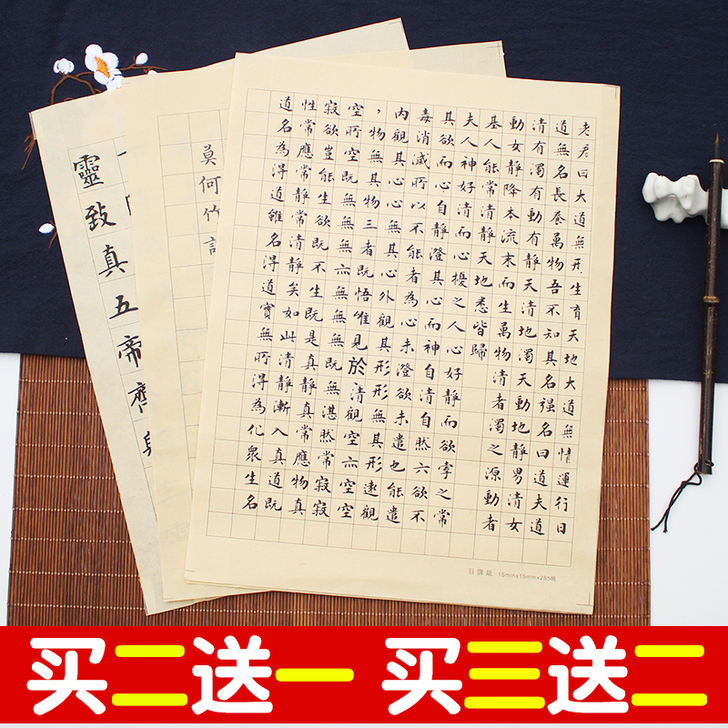 老君曰大道無形生育天地大道無情運行日
道無名長養萬物吾不知其名強名曰道夫道
清有濁有動有靜天清地濁天動地靜男清女
動女靜降本流末而生萬物清者濁之源動者
基人能常清靜天地悉皆歸
夫人神好清而心擾之人心好靜而欲牽之常
其欲而心自靜澄其心而神自清自然六欲不
毒消滅所以不能者為心未澄欲未遣也能遣
內觀其心心無其心外觀其形形無其形遠觀
，物無其物三者既悟唯見於清觀空亦空空
空所空既無無亦無無無既無湛然常寂寂
寂欲豈能生欲既不生既是真靜真常應物真
性常應常靜常清靜矣如此清靜漸入真道既
道名為得道雖名得道實無所得為化眾生名
日課紙 15mm×15mm×285格
莫何竹
靈致真五帝齊
买二送一 买三送二